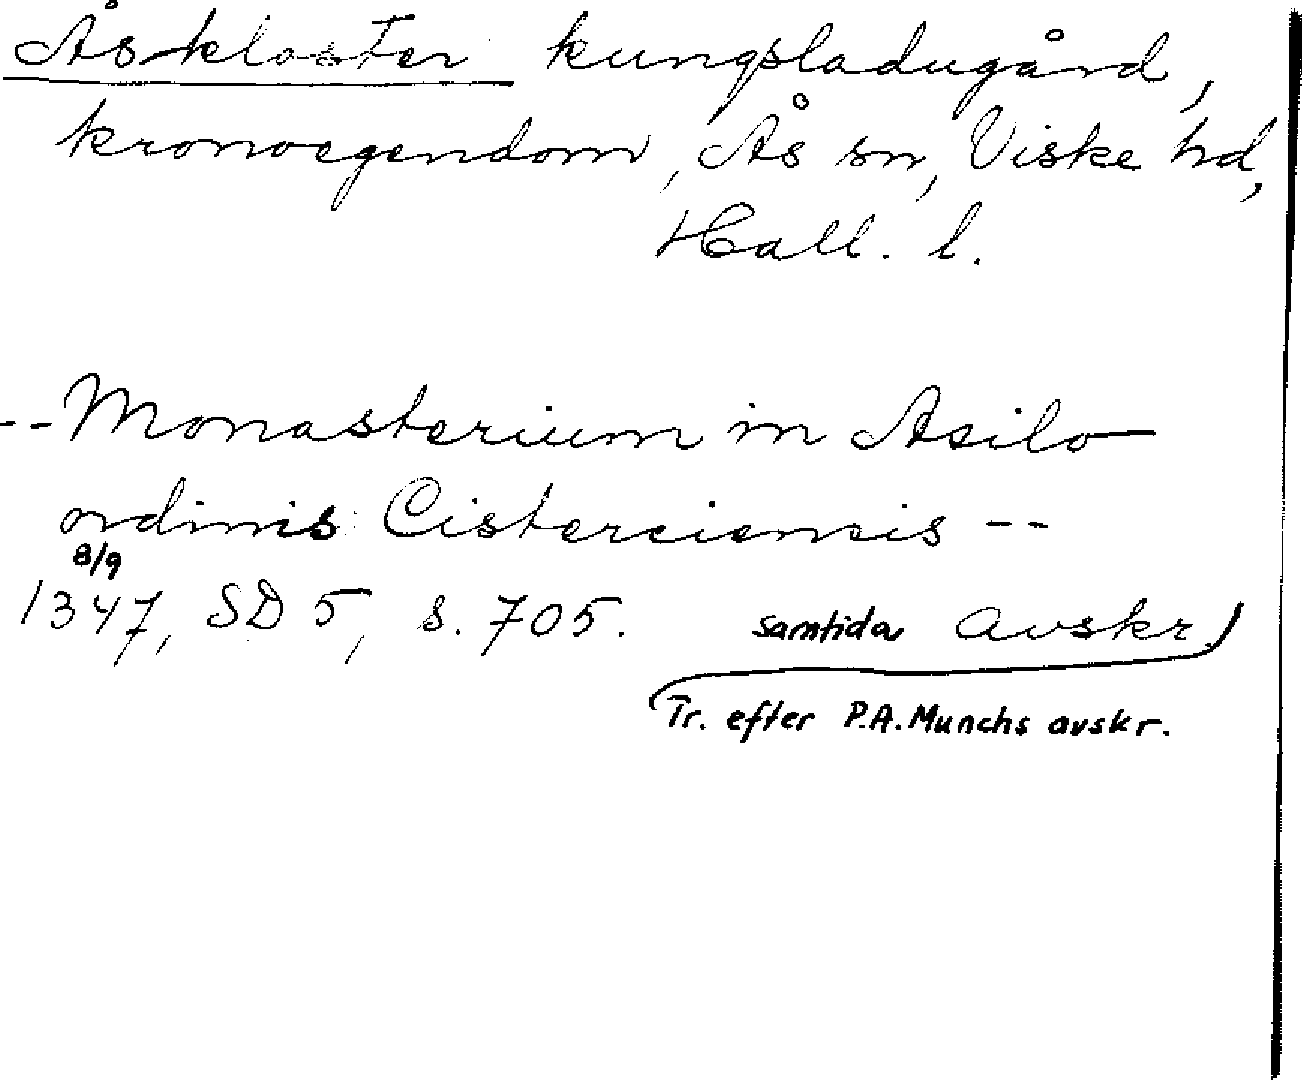 Åskloster kungsladugård,
kronoegendom, Ås sn, Viske hd,
Hall. l.
-- Monasterium in Asilo
ordinis Cisterciensis --
8/9
1347, SD 5, s. 705. samtida avskr.
Tr. efter P.A. Munchs avskr.